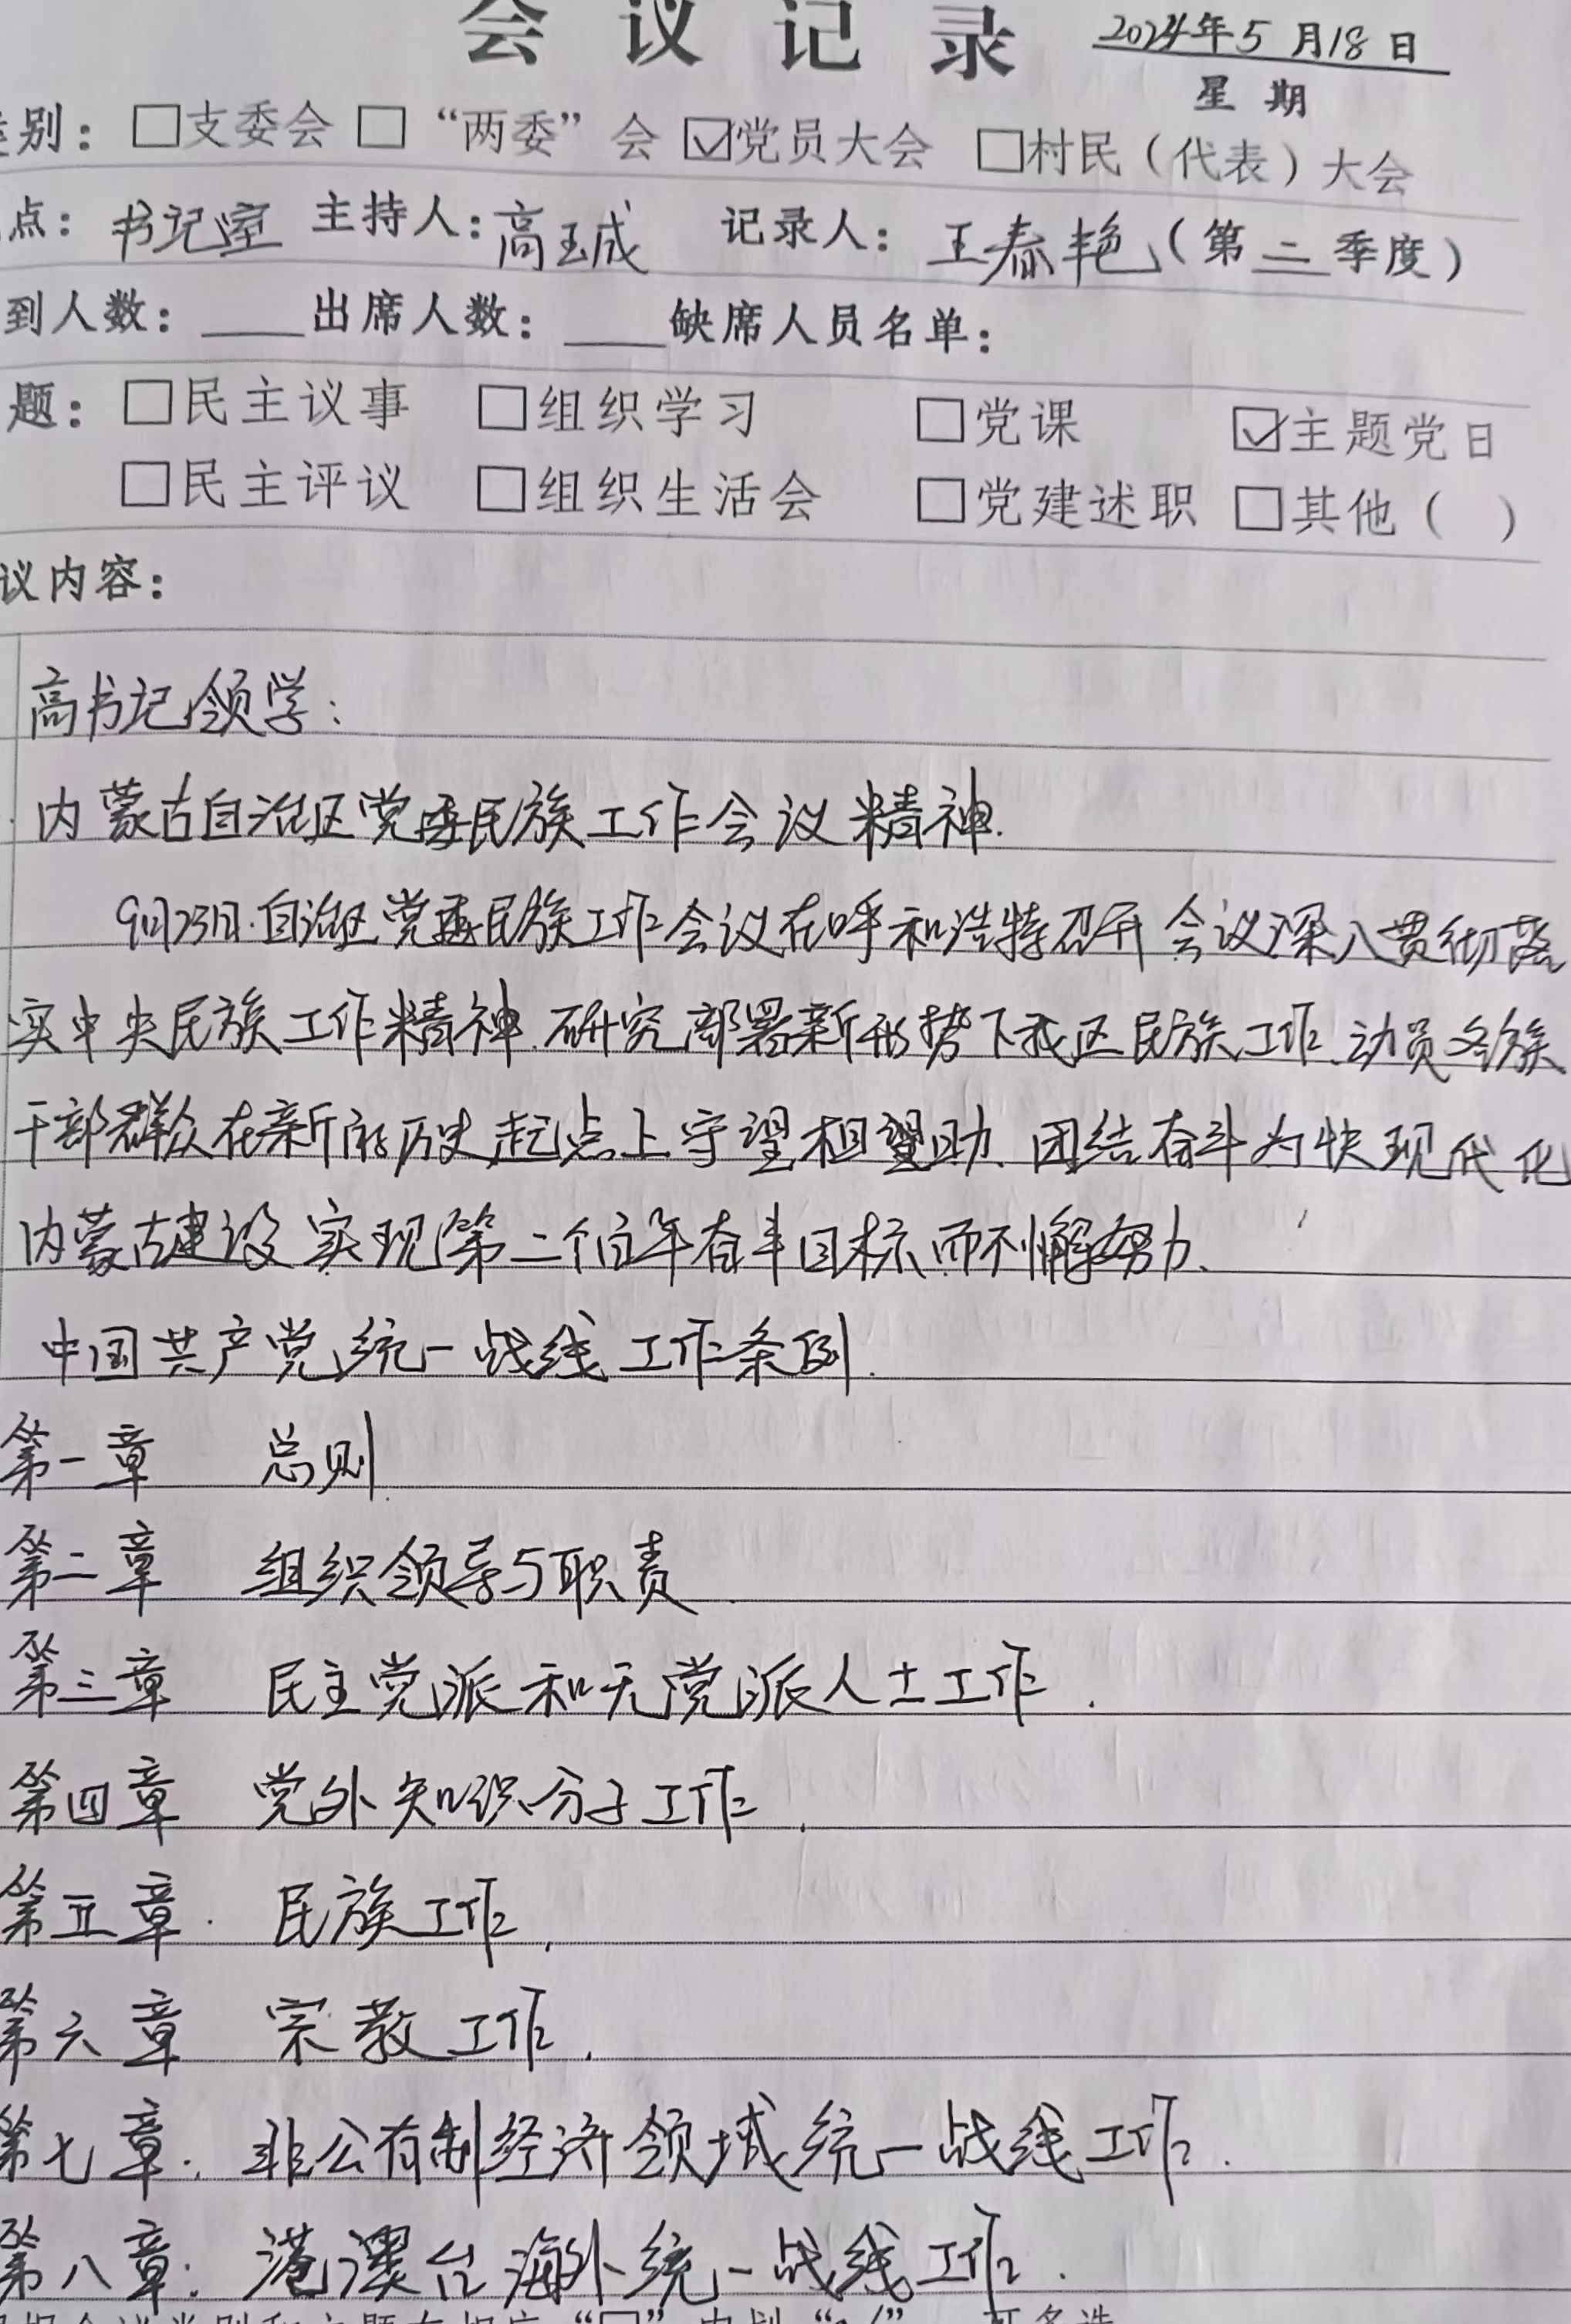 会议记录 2024年5月18日
星期
别：□支委会 □“两委”会 ☑党员大会 □村民（代表）大会
点：书记室 主持人：高玉成 记录人：王春艳（第二季度）
到人数：____出席人数：____缺席人员名单：
题：□民主议事 □组织学习 □党课 ☑主题党日
□民主评议 □组织生活会 □党建述职 □其他（ ）
议内容：
高书记领学：
内蒙古自治区党委民族工作会议精神.
9月23日.自治区党委民族工作会议在呼和浩特召开 会议深入贯彻落
实中央民族工作精神.研究部署新形势下我区民族工作.动员各族
干部群众在新的历史起点上守望相望助.团结奋斗为快现代化
内蒙古建设 实现第二个百年奋斗目标而不懈努力.
中国共产党统一战线工作条例.
第一章 总则.
第二章 组织领导与职责.
第三章 民主党派和无党派人士工作.
第四章 党外知识分子工作.
第五章. 民族工作.
第六章 宗教工作.
第七章. 非公有制经济领域统一战线工作.
第八章. 港澳台海外统一战线工作.